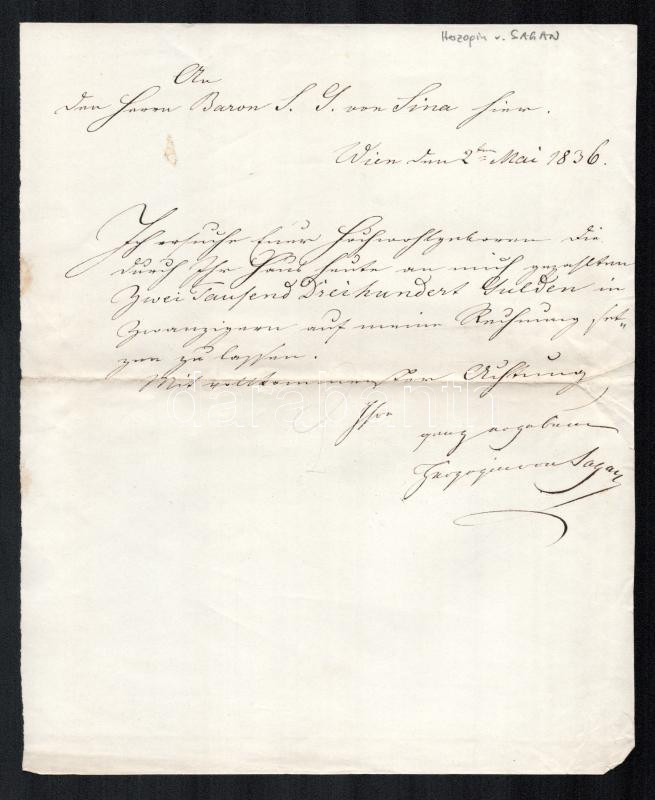 Herzogin v. SAGAN
An
den Herrn Baron S. G. von Sina hier.
Wien den 2ten Mai 1836.
Ich ersuche Euer Hochwohlgeboren die
durch Ihr Haus heute an mich gezahlten
Zwei Tausend Dreihundert Gulden in
Zwanzigern auf meine Rechnung set=
zen zu lassen.
Mit vollkommenster Achtung
Ihre
ganz ergebene
Herzogin von Sagan
darabanth